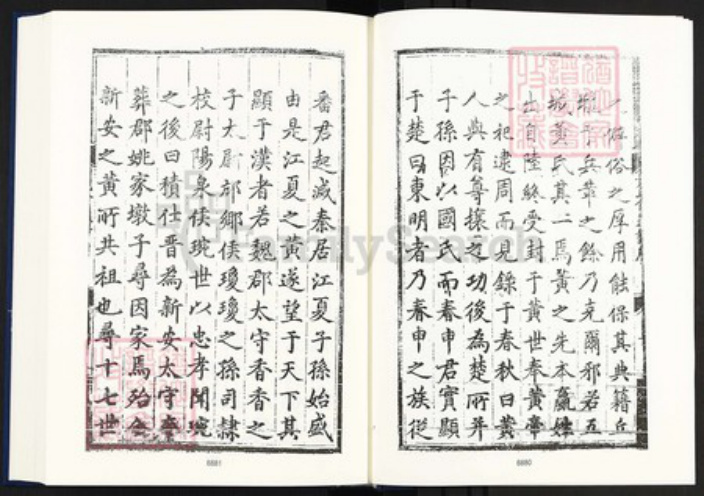 俗之厚用能保其典籍
兵革之餘乃克爾邪若五
城黃氏其一焉黃之先本嬴姓
出自陸終受封于黃世奉黃帝
之祀逮周而見錄于春秋曰黃
人與有尊攘之功後為楚所并
子孫因以國氏而春申君實顯
于楚曰東明者乃春申之族從
番君起滅秦居江夏子孫始盛
由是江夏之黃遂望于天下其
顯于漢者若魏郡太守香香之
子太尉邟鄉侯瓊瓊之孫司隸
校尉陽泉侯琬世以忠孝聞琬
之後曰積仕晉為新安太守卒
葬郡姚家墩子尋因家焉
新安之黃所共祖也尋十七世
FamilySearch
6681
6680